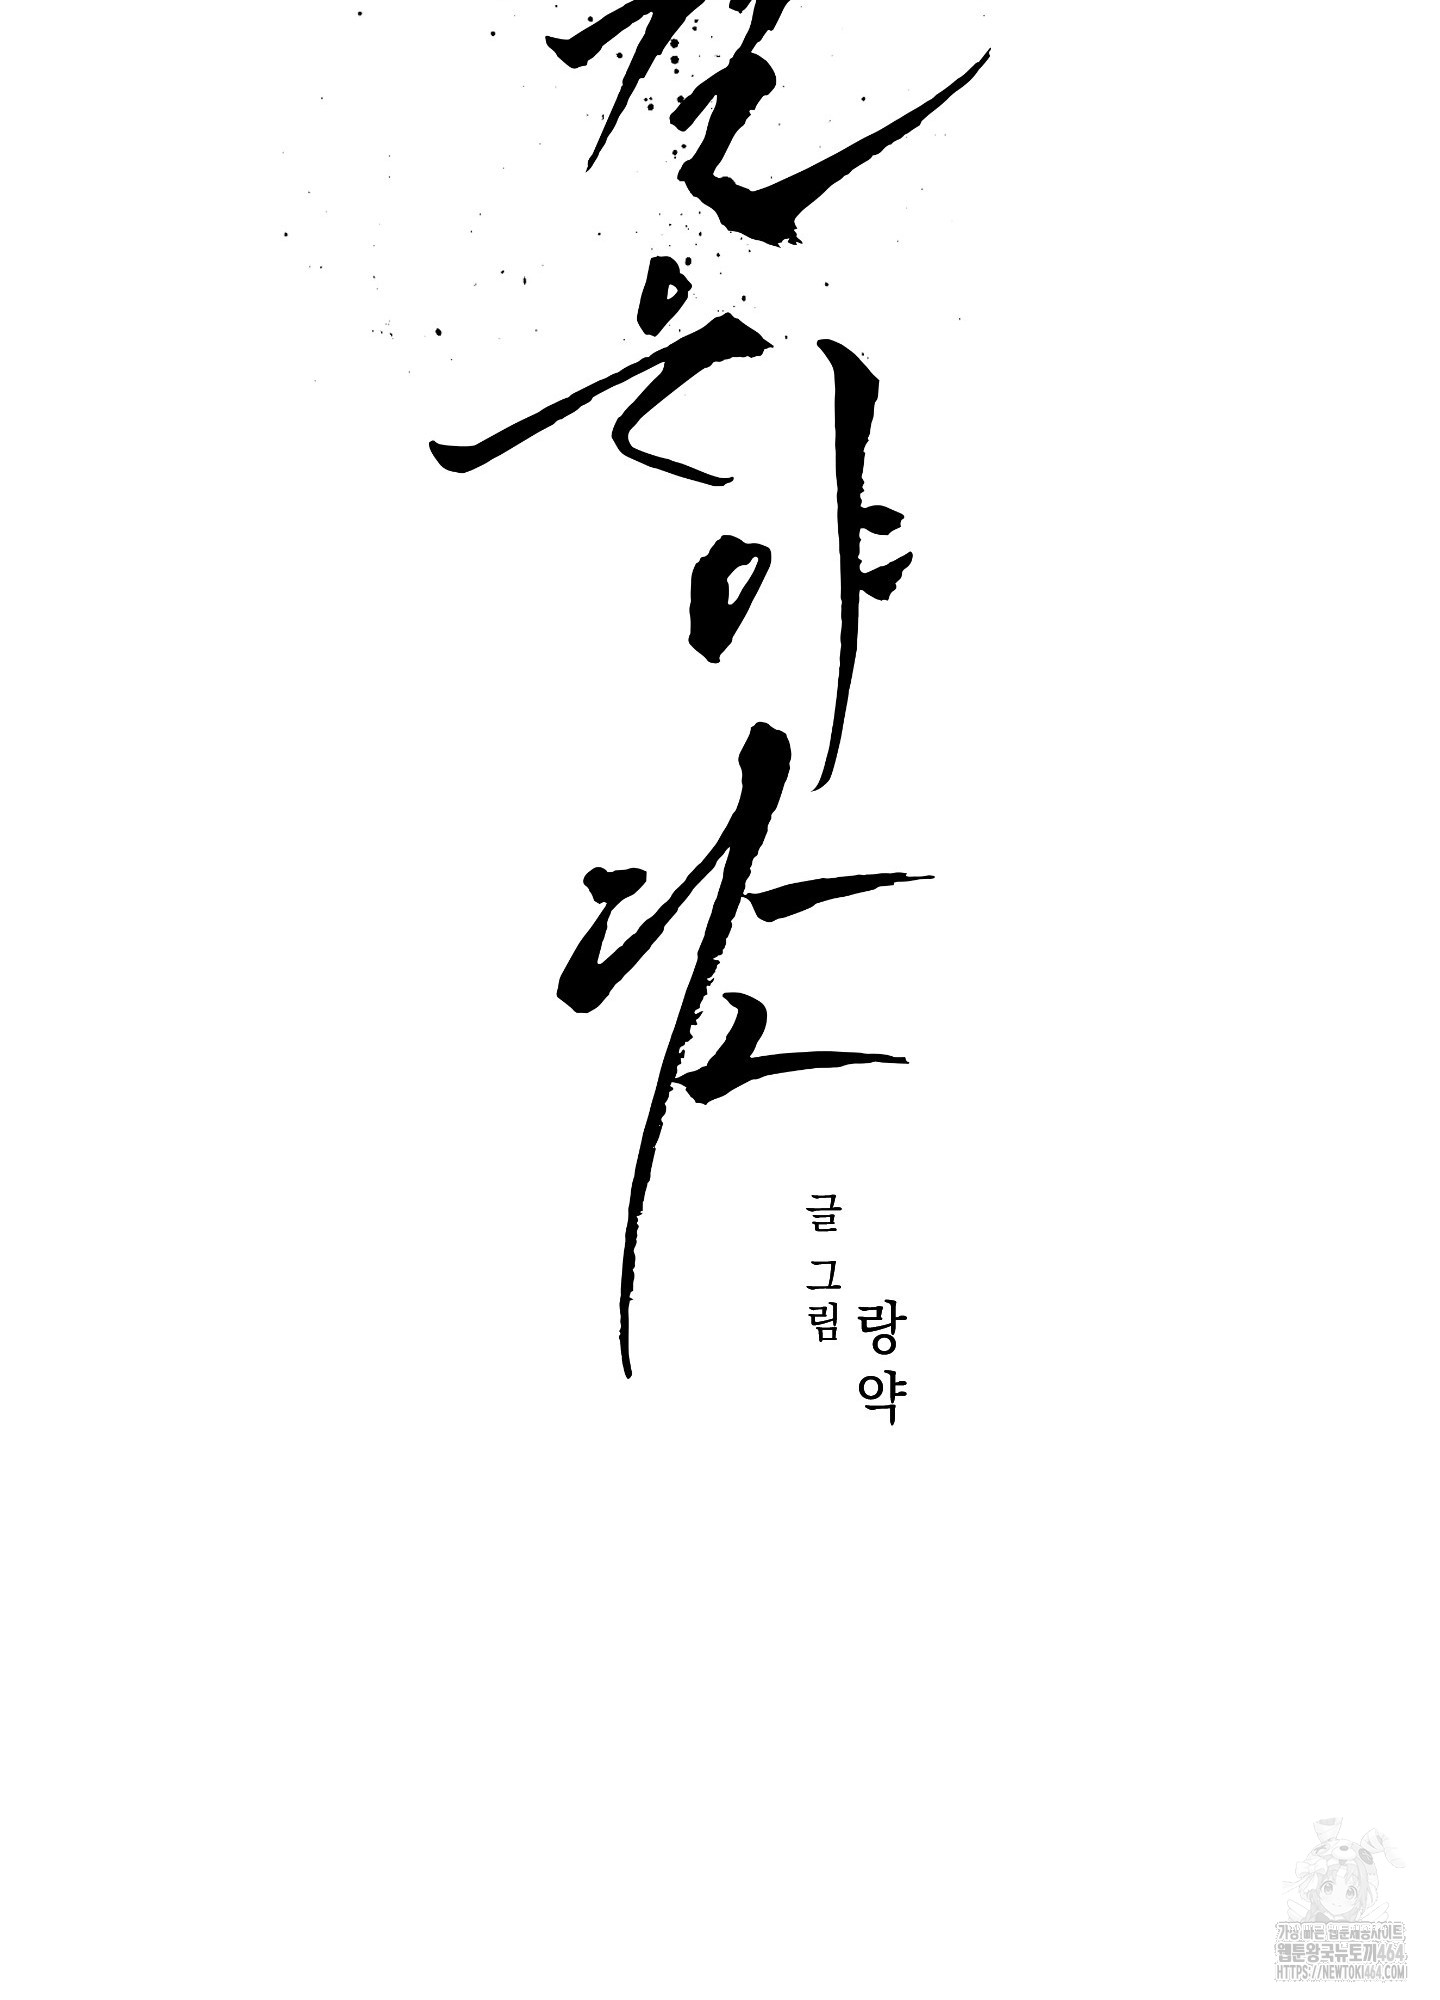 은
야
담
글 그림
랑약
가장 빠른 웹툰제공사이트
웹툰왕국뉴토끼464
HTTPS://NEWTOKI464.COM